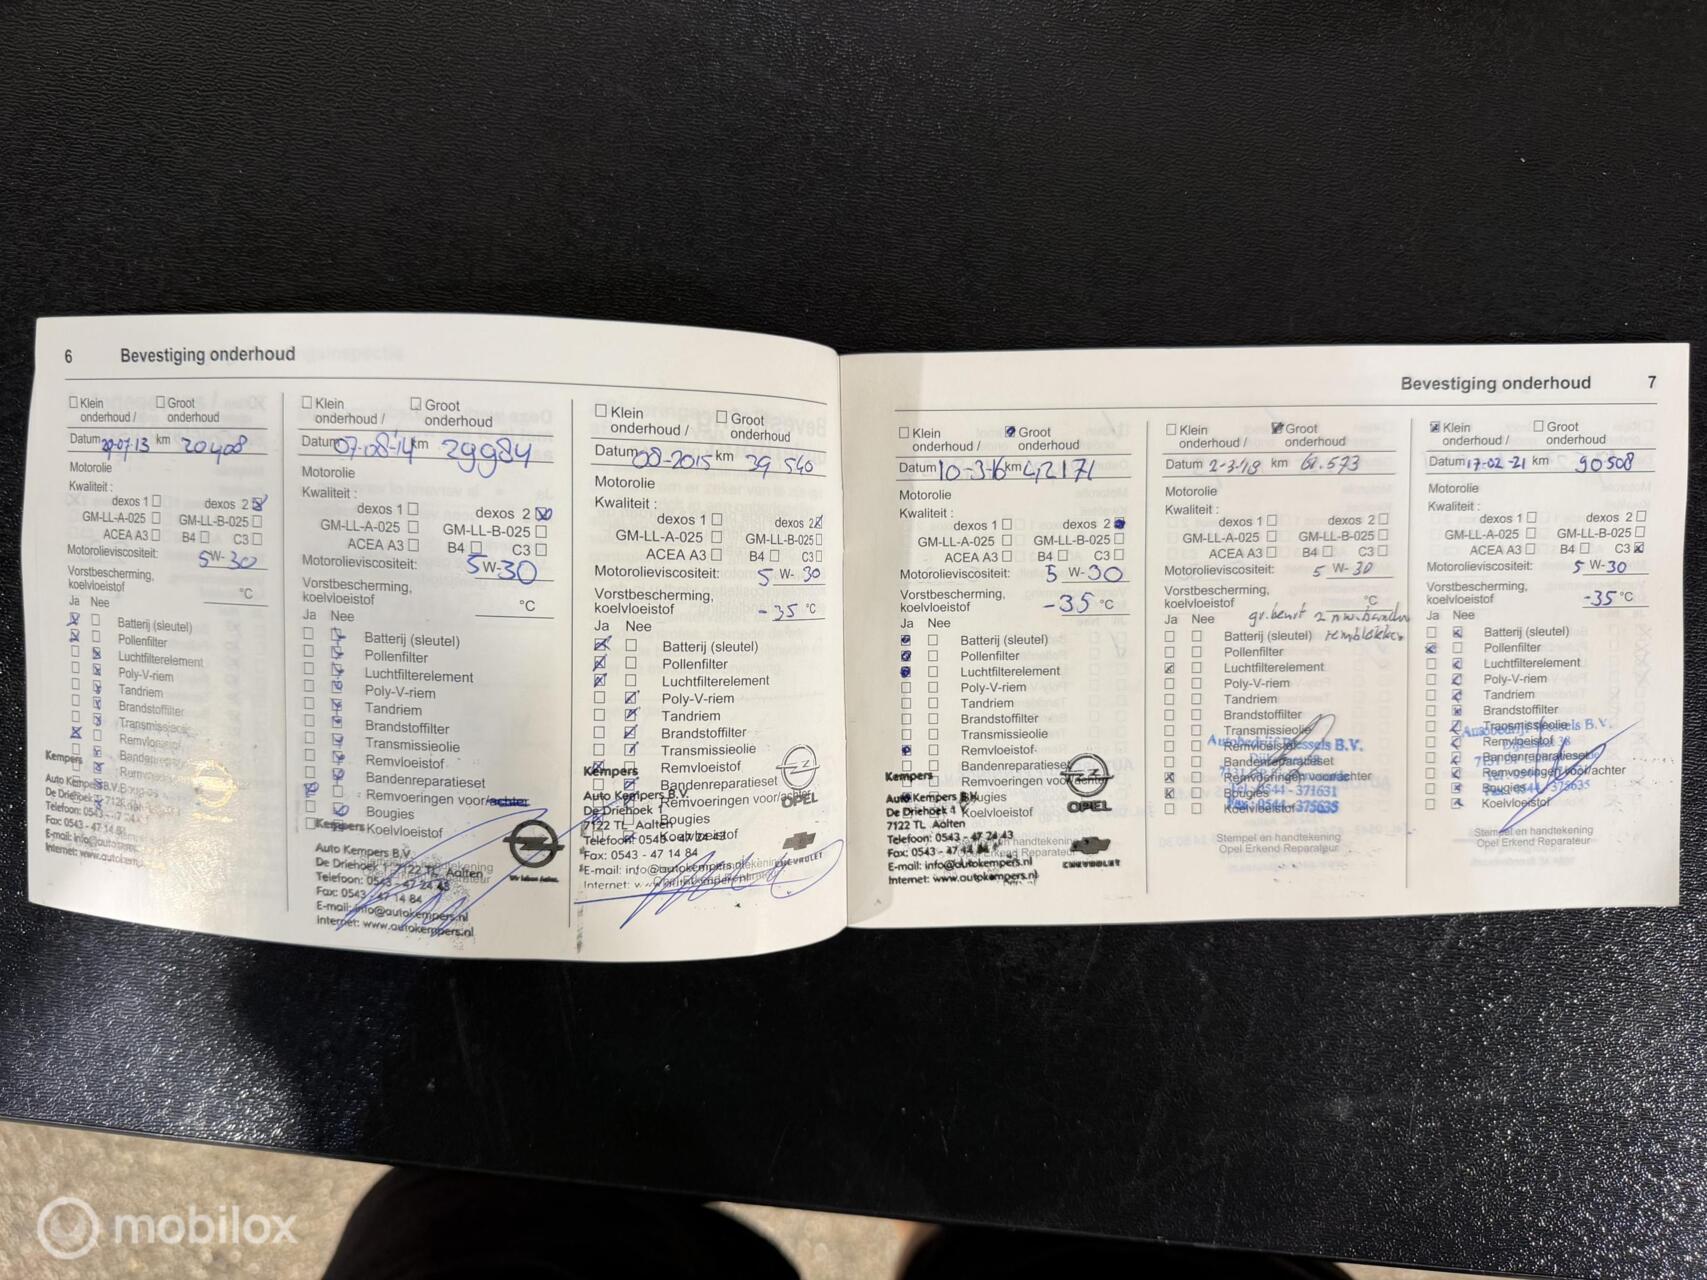 6 Bevestiging onderhoud
Klein onderhoud / Groot onderhoud
Datum km 20408
Motorolie
Kwaliteit :
dexos 1 dexos 2
GM-LL-A-025 GM-LL-B-025
ACEA A3 B4 C3
Motorolieviscositeit: 5 W- 30
Vorstbescherming,
koelvloeistof °C
Ja Nee
Batterij (sleutel)
Pollenfilter
Luchtfilterelement
Poly-V-riem
Tandriem
Brandstoffilter
Transmissieolie
Remvloeistof
Kempers
Auto Kempers B.V.
De Driehoek
Telefoon: 0543 - 47 24
Fax: 0543 - 47 14 84
E-mail: info@autokempers
Internet: www.autokem
Klein onderhoud / Groot onderhoud
Datum 07-08-'14 km 29984
Motorolie
Kwaliteit :
dexos 1 dexos 2
GM-LL-A-025 GM-LL-B-025
ACEA A3 B4 C3
Motorolieviscositeit: 5 W- 30
Vorstbescherming,
koelvloeistof °C
Ja Nee
Batterij (sleutel)
Pollenfilter
Luchtfilterelement
Poly-V-riem
Tandriem
Brandstoffilter
Transmissieolie
Remvloeistof
Bandenreparatieset
Remvoeringen voor/achter
Bougies
Koelvloeistof
Kempers
Auto Kempers B.V.
De Driehoek 7122 TL Aalten
Telefoon: 0543 - 47 24 43
Fax: 0543 - 47 14 84
E-mail: info@autokempers.nl
Internet: www.autokempers.nl
Klein onderhoud / Groot onderhoud
Datum 08-2015 km 39 540
Motorolie
Kwaliteit :
dexos 1 dexos 2
GM-LL-A-025 GM-LL-B-025
ACEA A3 B4 C3
Motorolieviscositeit: 5 W- 30
Vorstbescherming,
koelvloeistof -35 °C
Ja Nee
Batterij (sleutel)
Pollenfilter
Luchtfilterelement
Poly-V-riem
Tandriem
Brandstoffilter
Transmissieolie
Remvloeistof
Bandenreparatieset
Remvoeringen voor/achter
Bougies
Koelvloeistof
Kempers
Auto Kempers B.V.
De Driehoek 1
7122 TL Aalten
Telefoon: 0543 - 47 24 43
Fax: 0543 - 47 14 84
E-mail: info@autokempers.nl
OPEL
CHEVROLET
Bevestiging onderhoud 7
Klein onderhoud / Groot onderhoud
Datum 10-3-16 km 42171
Motorolie
Kwaliteit :
dexos 1 dexos 2
GM-LL-A-025 GM-LL-B-025
ACEA A3 B4 C3
Motorolieviscositeit: 5 W- 30
Vorstbescherming,
koelvloeistof -35 °C
Ja Nee
Batterij (sleutel)
Pollenfilter
Luchtfilterelement
Poly-V-riem
Tandriem
Brandstoffilter
Transmissieolie
Remvloeistof
Bandenreparatieset
Remvoeringen voor/achter
Bougies
Koelvloeistof
Kempers
Auto Kempers B.V.
De Driehoek 1
7122 TL Aalten
Telefoon: 0543 - 47 24 43
Fax: 0543 - 47 14 84
E-mail: info@autokempers.nl
Internet: www.autokempers.nl
OPEL
CHEVROLET
Klein onderhoud / Groot onderhoud
Datum km
Motorolie
Kwaliteit :
dexos 1 dexos 2
GM-LL-A-025 GM-LL-B-025
ACEA A3 B4 C3
Motorolieviscositeit: 5 W- 30
Vorstbescherming,
koelvloeistof °C
Ja Nee
Batterij (sleutel)
Pollenfilter
Luchtfilterelement
Poly-V-riem
Tandriem
Brandstoffilter
Transmissieolie
Remvloeistof
Bandenreparatieset
Remvoeringen voor/achter
Bougies
Koelvloeistof
Autobedrijf Wessels B.V.
Tel. 0544 - 371631
Fax: 0544 - 375635
Stempel en handtekening
Opel Erkend Reparateur
Klein onderhoud / Groot onderhoud
Datum 17-02-21 km 90508
Motorolie
Kwaliteit :
dexos 1 dexos 2
GM-LL-A-025 GM-LL-B-025
ACEA A3 B4 C3
Motorolieviscositeit: 5 W- 30
Vorstbescherming,
koelvloeistof -35 °C
Ja Nee
Batterij (sleutel)
Pollenfilter
Luchtfilterelement
Poly-V-riem
Tandriem
Brandstoffilter
Transmissieolie
Remvloeistof
Bandenreparatieset
Remvoeringen voor/achter
Bougies
Koelvloeistof
Autobedrijf Wessels B.V.
Stempel en handtekening
Opel Erkend Reparateur
mobilox